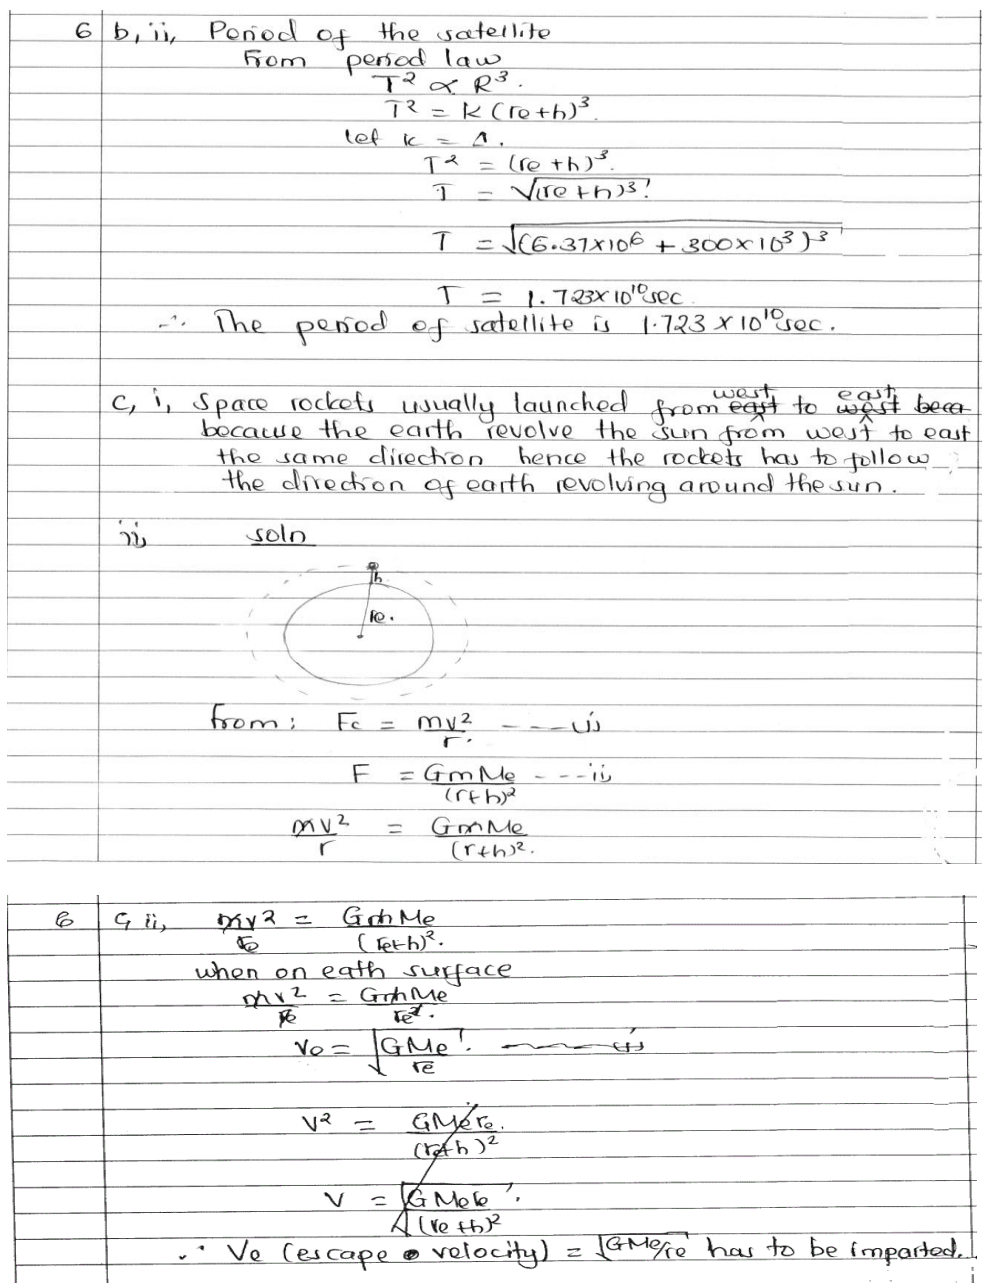 6 b, ii, Period of the satellite
From period law
T² ∝ R³.
T² = k (re+h)³.
let k = 1.
T² = (re+h)³.
T = √(re+h)³
T = √(6.37×10⁶ + 300×10³)³
T = 1.723×10¹⁰sec.
∴ The period of satellite is 1.723 × 10¹⁰sec.
c, i, Space rockets usually launched from east west to west east beca
because the earth revolve the sun from west to east
the same direction hence the rockets has to follow
the direction of earth revolving around the sun.
ii, soln
h
re.
from: Fc = mv²/r. ----- i,
F = GmMe/(r+h)² ---- ii,
mv²/r = GmMe/(r+h)².
6 c, ii, mv²/re = GmMe/(re+h)².
when on eath surface
mv²/re = GmMe/re².
Vo = √GMe/re. ------ i,
V² = GMere./(re+h)²
V = √GMere/(re+h)²
∴ Ve (escape velocity) = √GMe/re has to be imparted.